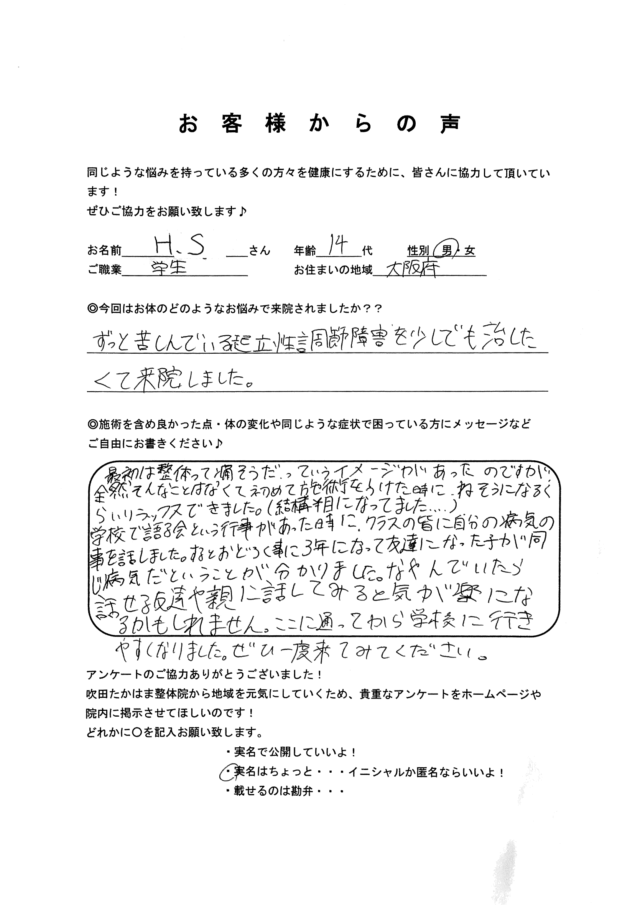 お客様からの声
同じような悩みを持っている多くの方々を健康にするために、皆さんに協力して頂いてい
ます！
ぜひご協力をお願い致します♪
お名前 H.S. さん 年齢 14 代 性別 男・女
ご職業 学生 お住まいの地域 大阪府
◎今回はお体のどのようなお悩みで来院されましたか？？
ずっと苦しんでいる起立性調節障害を少しでも治した
くて来院しました。
◎施術を含め良かった点・体の変化や同じような症状で困っている方にメッセージなど
ご自由にお書きください♪
最初は整体って痛そうだっていうイメージがあったのですが
全然そんなことはなくて初めて施術をうけた時に、ねそうになるく
らいリラックスできました。(結構半目になってました….)
学校で語る会という行事があった時に、クラスの皆に自分の病気の
事を話しました。するとおどろく事に3年になって友達になった子が同
じ病気だということが分かりました。なやんでいたら
話せる友達や親に話してみると気が楽にな
るかもしれません。ここに通ってから学校に行き
やすくなりました。ぜひ一度来てみてください。
アンケートのご協力ありがとうございました！
吹田たかはま整体院から地域を元気にしていくため、貴重なアンケートをホームページや
院内に掲示させてほしいのです！
どれかに〇を記入お願い致します。
・実名で公開していいよ！
・実名はちょっと・・・イニシャルか匿名ならいいよ！
・載せるのは勘弁・・・